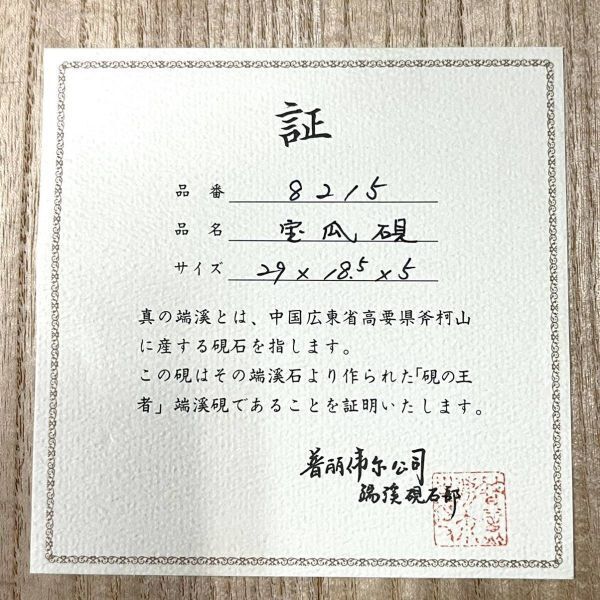 証
品番 8215
品名 宝瓜硯
サイズ 29×18.5×5
真の端溪とは、中国広東省高要県斧柯山
に産する硯石を指します。
この硯はその端溪石より作られた「硯の王
者」端溪硯であることを証明いたします。
普丽伟尔公司
端溪硯石部